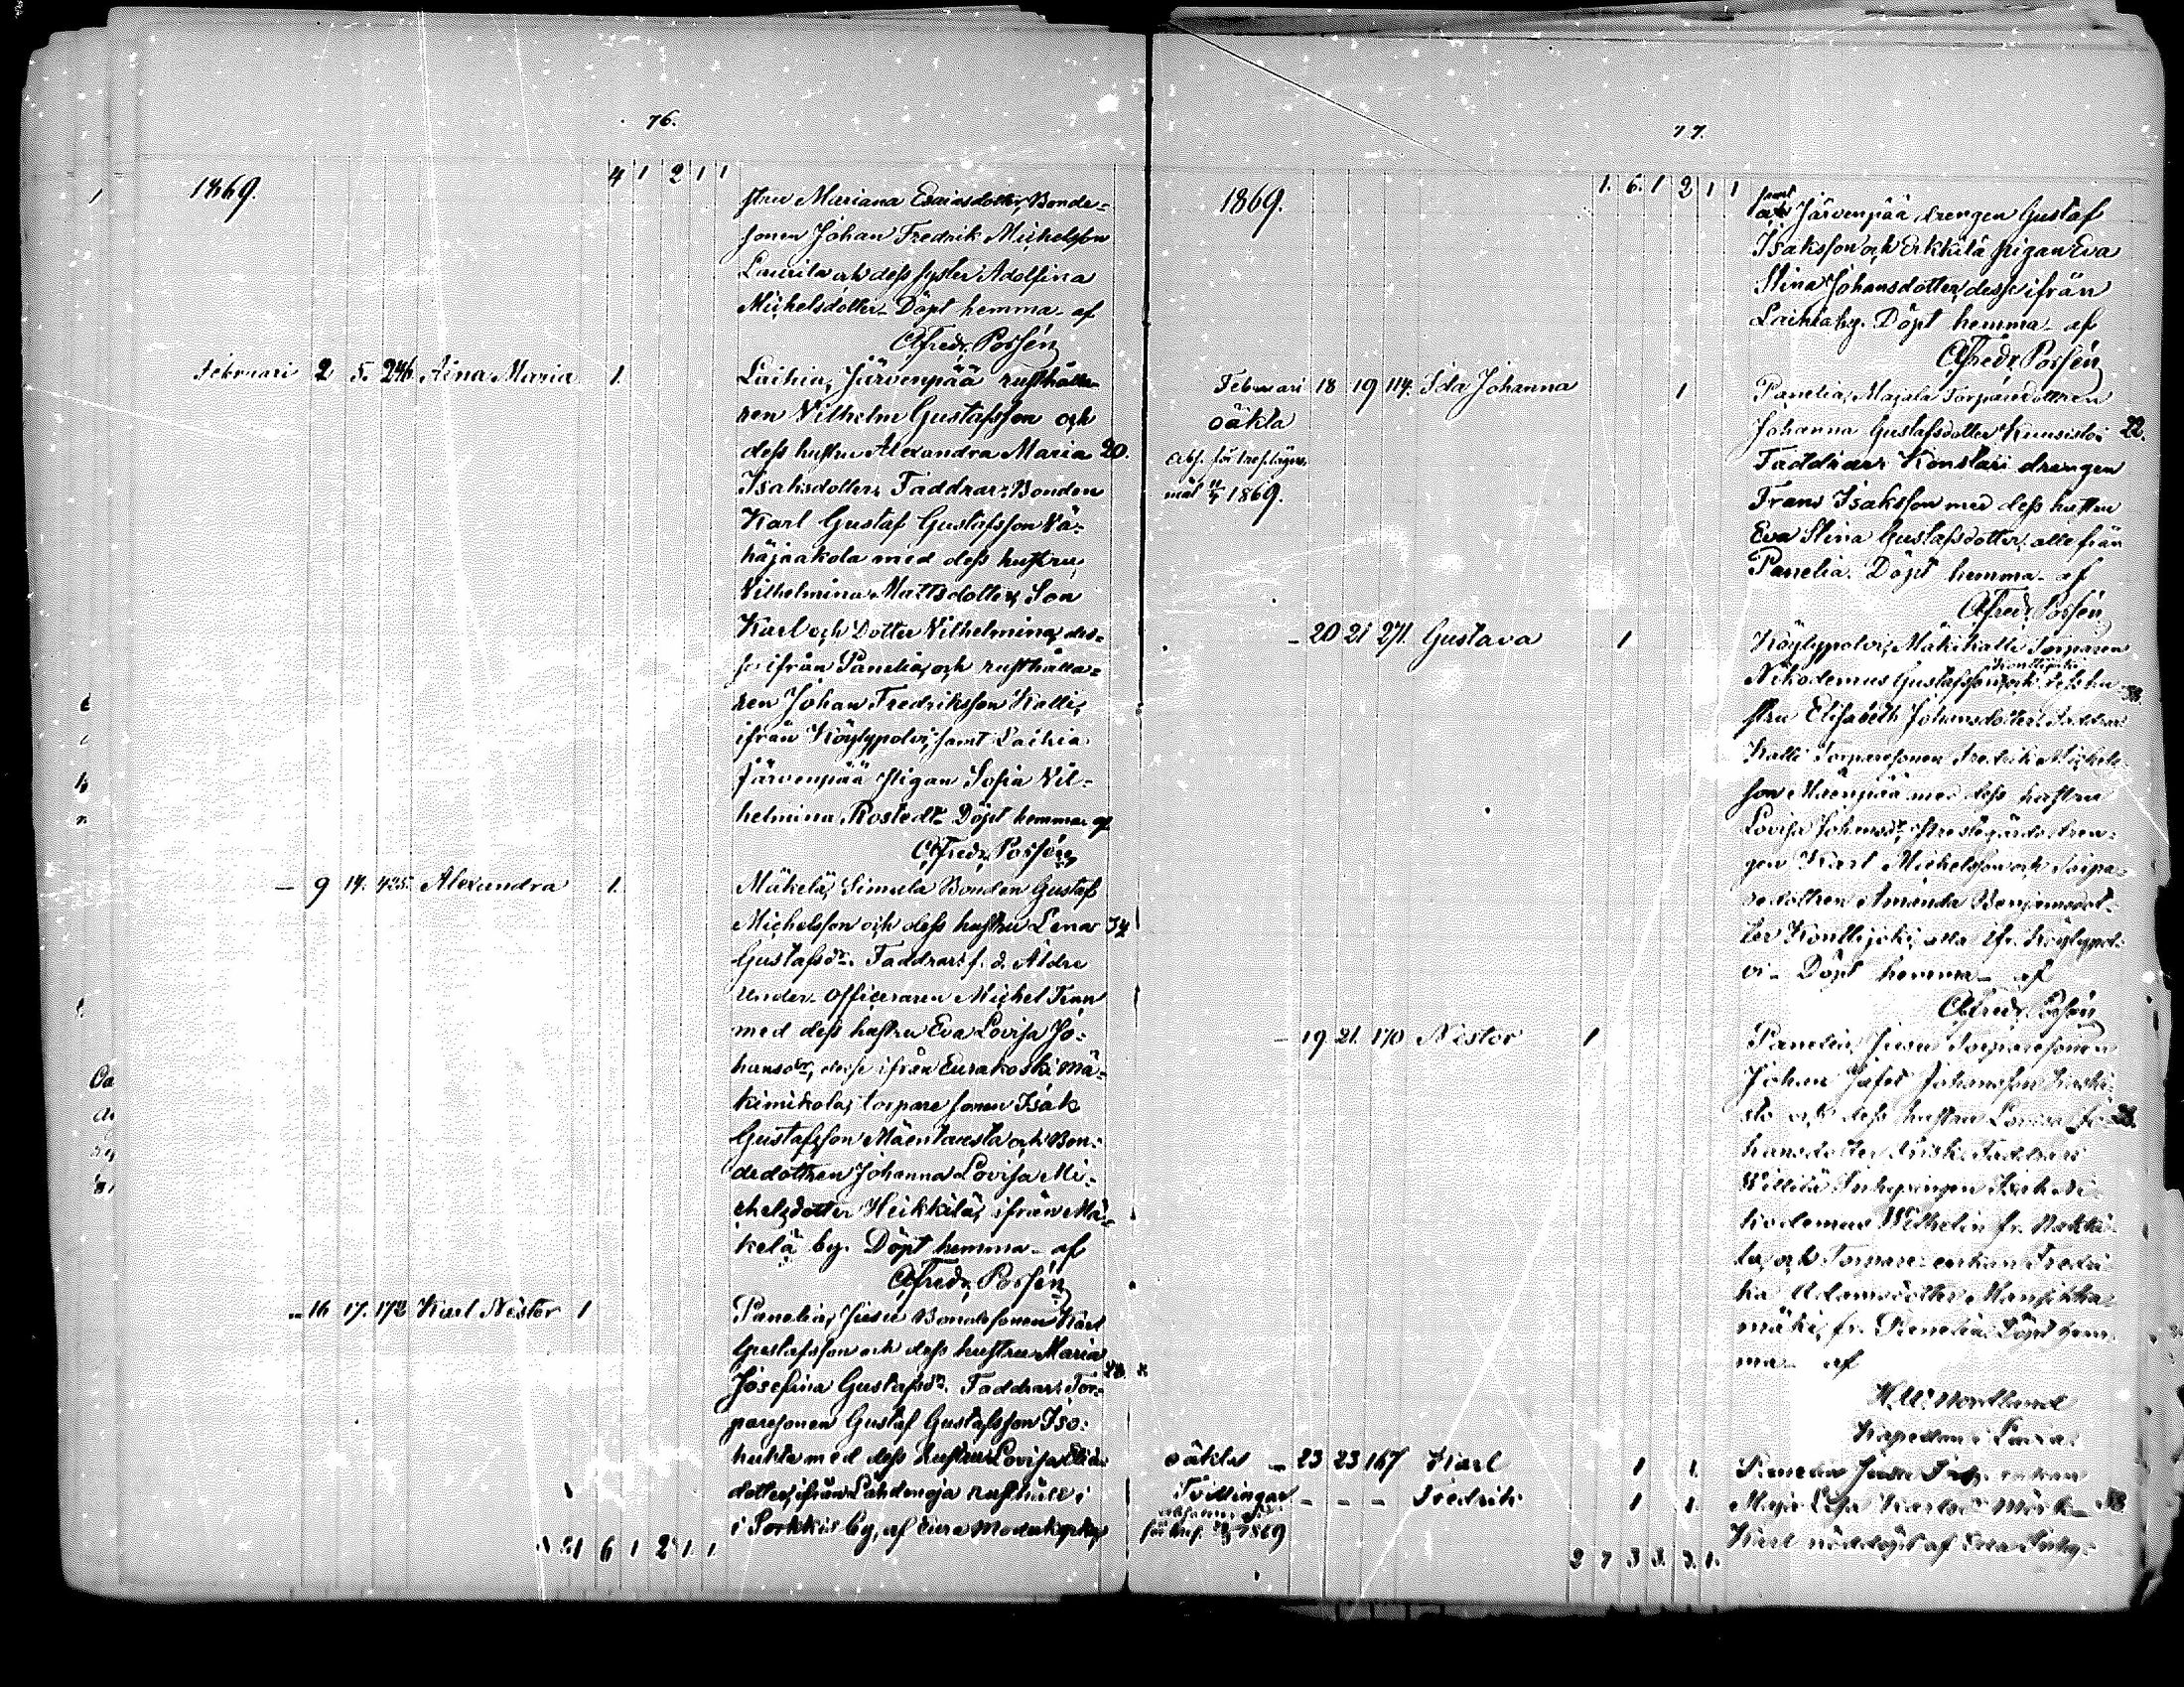 76.
1869.
4 1 2 1 1
stru Mariana Esaiasdotter, Bonde-
sonen Johan Fredrik Michelsson
Laurila och dess syster Adolfina
Michelsdotter. Döpt hemma af
Alfredr. Possén
Februari 2 5. 246 Aina Maria 1.
Laihia, Järvenpää rusthålla-
ren Vilhelm Gustafsson och
dess hustru Alexandra Maria 20.
Isaksdotter. Faddrar: Bonden
Karl Gustaf Gustafsson Vä-
häjaakola med dess hustru
Vilhelmina Mattsdotter, Son
Karl och Dotter Vilhelmina, des-
se ifrån Panelia, och rusthålla-
ren Johan Fredriksson Kalli,
ifrån Köylypolvi, samt Laihia
Järvenpää pigan Sofia Vil-
helmina Rostedt. Döpt hemma af
Alfredr. Possén
— 9 14. 425. Alexandra 1.
Mäkelä, Simula Bonden Gustaf
Michelsson och dess hustru Lena 34
Gustafsdr. Faddrar: f. d. Äldre
Under-officeraren Michel Finn
med dess hustru Eva Lovisa Jo-
hansdr, desse ifrån Eurakoski Mä-
kimikola, torpare sonen Isak
Gustafsson Mäentausta och Bon-
dedottren Johanna Lovisa Mi-
chelsdotter Heikkilä, ifrån Mä-
kelä by. Döpt hemma af
Alfredr. Possén
— 16 17. 172 Karl Nestor 1
Panelia, Jusu Bondesonen Karl
Gustafsson och dess hustru Maria
Josefina Gustafsdr. Faddrar: Tor-
paresonen Gustaf Gustafsson Iso-
huhta med dess hustru Lovisa
dotter, ifrån Lähdenoja rusthåll i
i Sorkkis by, af Eura Moderkyrka,
21 6 1 2 1. 1.
77.
1869.
1. 6. 1 2 1 1
samt
Järvenpää drengen Gustaf
Isaksson och Erkkilä pigan Eva
Stina Johansdotter, desse ifrån
Laihia by. Döpt hemma af
Alfredr. Possén
Februari 18 19 114. Ida Johanna 1
oäkta
mål 1869.
Panelia, Majala Torparedottren
Johanna Gustafsdotter Kuusisto. 22.
Faddrar: Konstari drengen
Frans Isaksson med dess hustru
Eva Stina Gustafsdotter, alle från
Panelia. Döpt hemma af
Alfredr. Possén
— 20 21 271. Gustava 1
Köylypolvi, Mäkikalli Torparen
Nikodemus Gustafsson och dess hu-
stru Elisabeth Johansdotter. Faddrar:
Kalli Torparesonen Fredrik Michels-
son Mäenpää med dess hustru
Lovisa Johansdr, Prestegårds dren-
gen Karl Michelsson och Torpa-
redottren Amanda Benjamsdot-
ter Konttijoki, alla ifr. Köylypol-
vi. Döpt hemma af
Alfredr. Possén
— 19 21. 170 Nestor 1
Panelia, Jusu Torparesonen
Johan Jafet Johansson
sto och dess hustru Lovisa Jo- 28.
hansdotter Faddrar:
Isak Ni-
kodemus Wilhelm fr. Nakki-
la, och Torpare enkan Fredri-
ka Adamsdotter Mansikka-
mäki, fr. Panelia. Döpt hem-
ma af
Nordlund
Kapellan i Eura.
oäkta — 23 23 167 Karl 1 1.
Tvillingar — — — Fredrik 1 1.
1869
Panelia Jusu
Maja Lisa Karlsdr 38
Karl nöddöpt af
2 7 3 3. 3. 1.